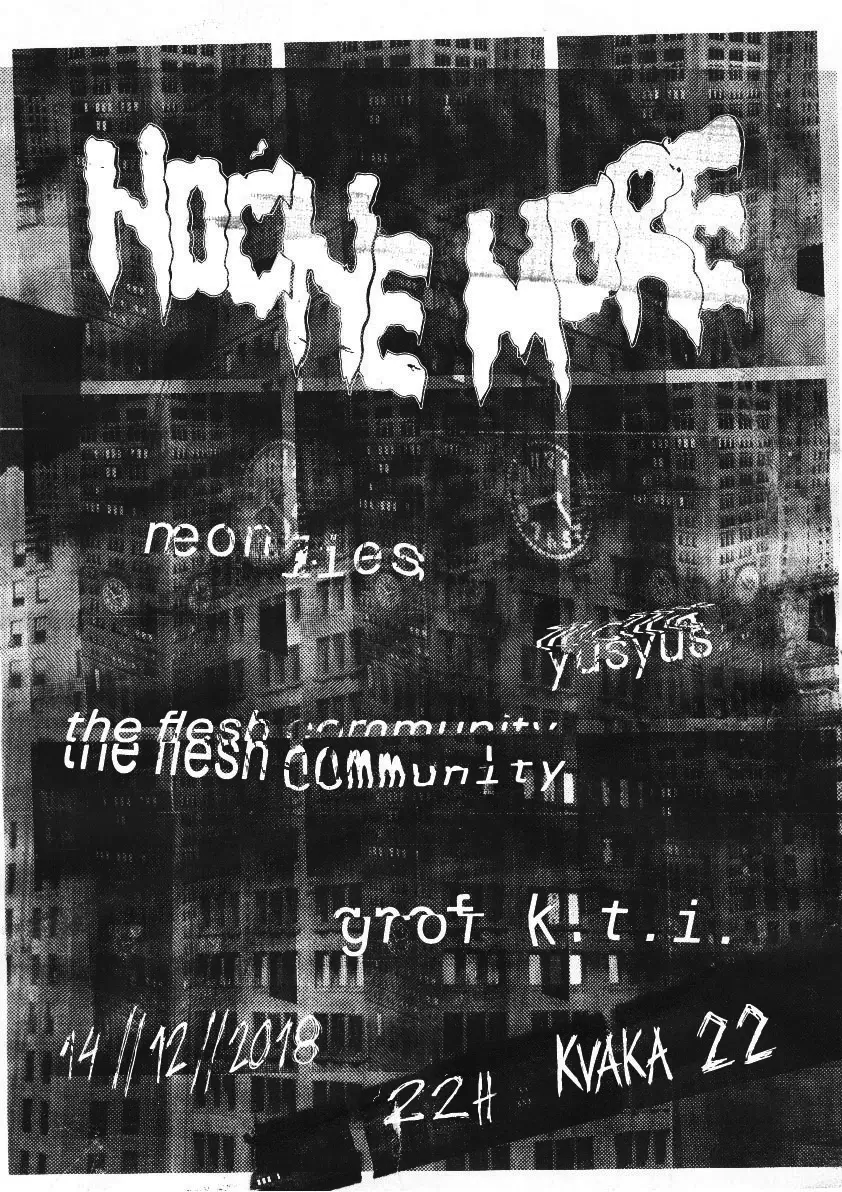 NOĆNE MORE
neonkies
yusyus
the flesh community
the flesh community
grof k.t.i.
14//12//2018
22H
KVAKA 22